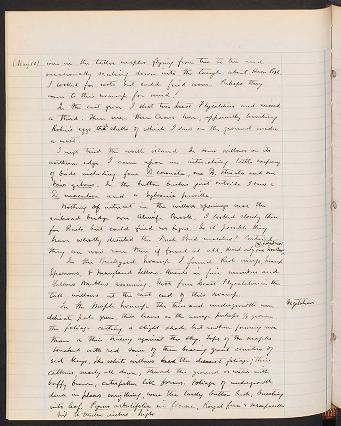 (May 12) over in the taller maples flying from tree to tree and
occasionally sailing down into the tangle about Heron Pool.
I looked for nests but could find none. Perhaps they
come to this swamp for mud?
In the east grove I shot two least Flycatchers and missed
a third. There were three Crows here, apparently hunting
Robin's eggs the shells of which I saw on the ground under
a nest.
I next tried the north island. In some willows on its
northern edge I came upon an interesting little company
of birds including four D. coronata, one D. striata and one
In the button bushes just outside I saw a
D. maculosa and a Sylvania pusilla.
Nothing of interest in the willow openings near the
railroad bridge over Alewife Brook. I looked closely there
for Rails but could find no signs. Is it possible they
have wholly deserted the Fresh Pond marshes? Certainly
they are now rare there if found at all.
In the Brickyard swamp I found Red-wings, Swamp
Sparrows, & Maryland Yellow-throats in fair numbers and
Yellow Warblers swarming. Shot four least Flycatchers in the
tall willows at the east end of this swamp.
In the Maple swamp the trees and undergrowth were
delicate pale green, their leaves on the average perhaps ⅓ grown
the foliage casting a slight shade but
than a thin screen against the sky. Tops of the maples
touched with red, some of them bearing great clusters of
red keys. The white willows had the densest foliage, their
catkins nearly all down, strewed the ground or water with
buffy brown, caterpillar like forms. Foliage of undergrowth
dense in places everything, even the tardy button bush, bursting
into leaf. Pyrus arbutifolia in flower. Royal fern &
Vegetation